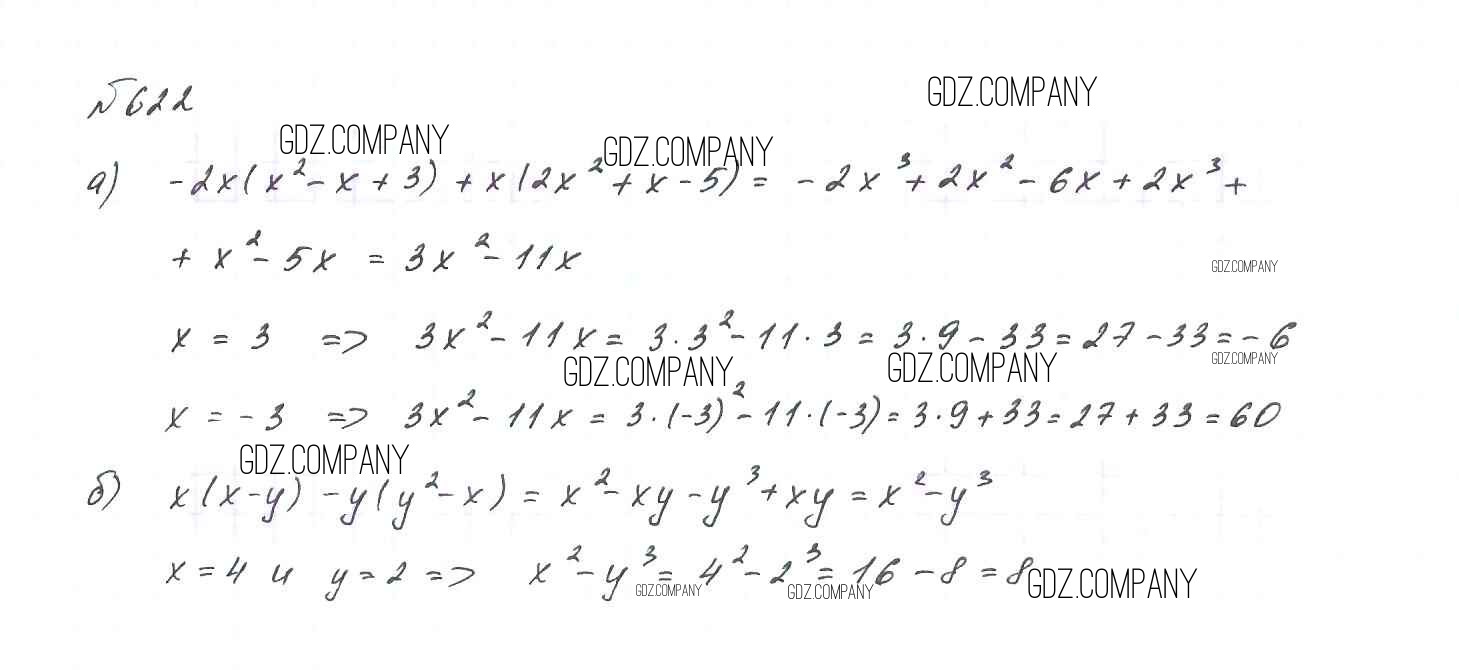 №622
GDZ.COMPANY
GDZ.COMPANY GDZ.COMPANY
а) -2x(x²-x+3)+x(2x²+x-5)= -2x³+2x²-6x+2x³+
+x²-5x = 3x²-11x
GDZ.COMPANY
x = 3 => 3x²-11x= 3·3²-11·3 = 3·9-33=27-33=-6
GDZ.COMPANY GDZ.COMPANY GDZ.COMPANY
x = -3 => 3x²-11x = 3·(-3)²-11·(-3)=3·9+33=27+33=60
GDZ.COMPANY
б) x(x-y)-y(y²-x) = x²-xy-y³+xy=x²-y³
x=4 и y=2 => x²-y³= 4²-2³=16-8=8
GDZ.COMPANY GDZ.COMPANY GDZ.COMPANY